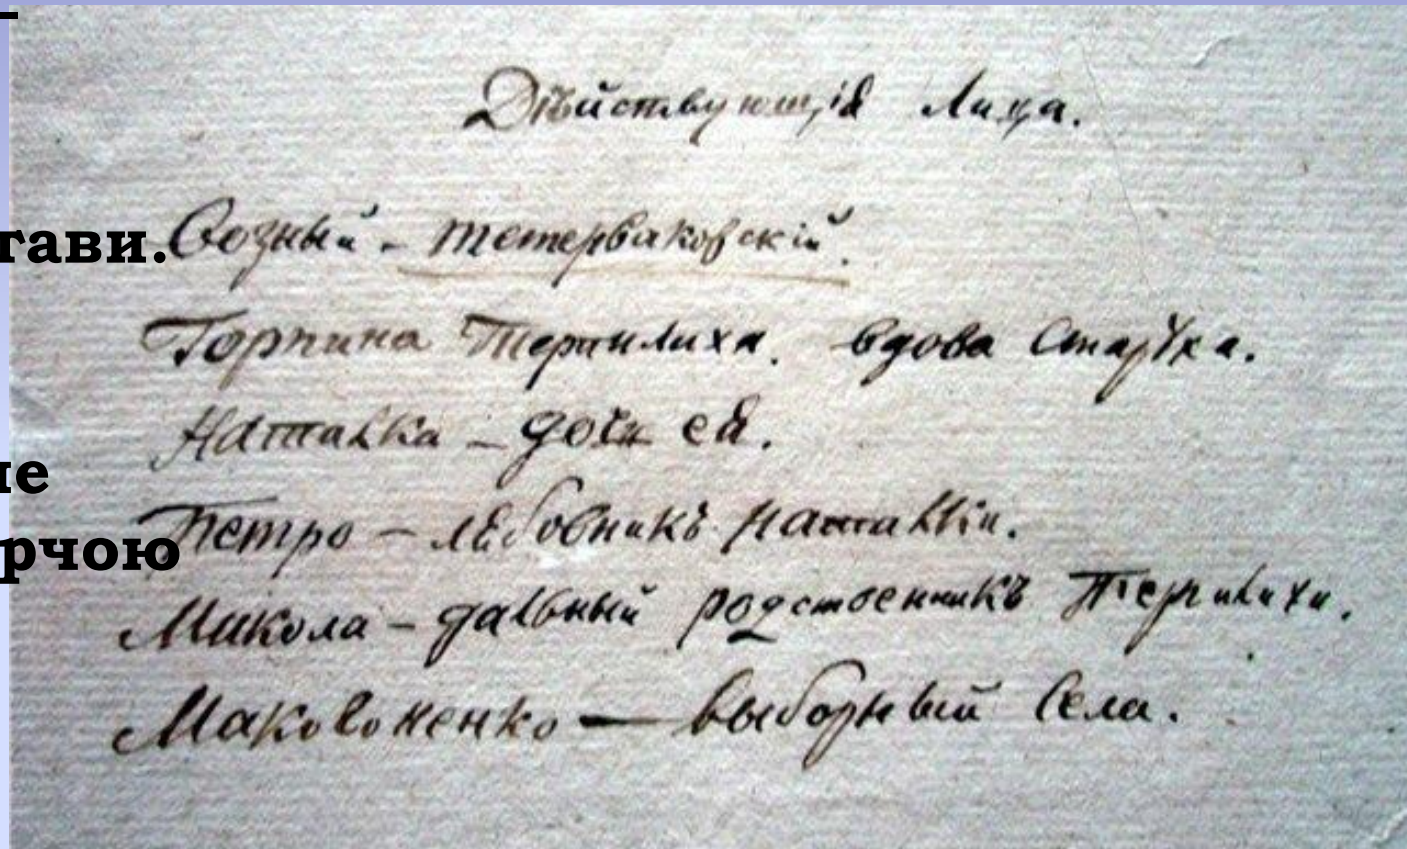 Дѣйствующія Лица.
тави.
Возный - тетерваковскій.
Горпина Терпилиха. вдова старуха.
Наталка - дочь ея.
не
Петро - любовникъ Наталкіи.
рчою
Микола - дальный родственникъ Терпилихи.
Маковоненко — выборный Села.